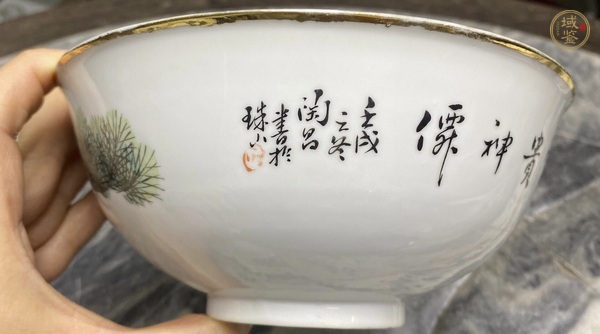 貴
神
僊
壬戌
之冬
闵昌
書於
珠山
域鉴